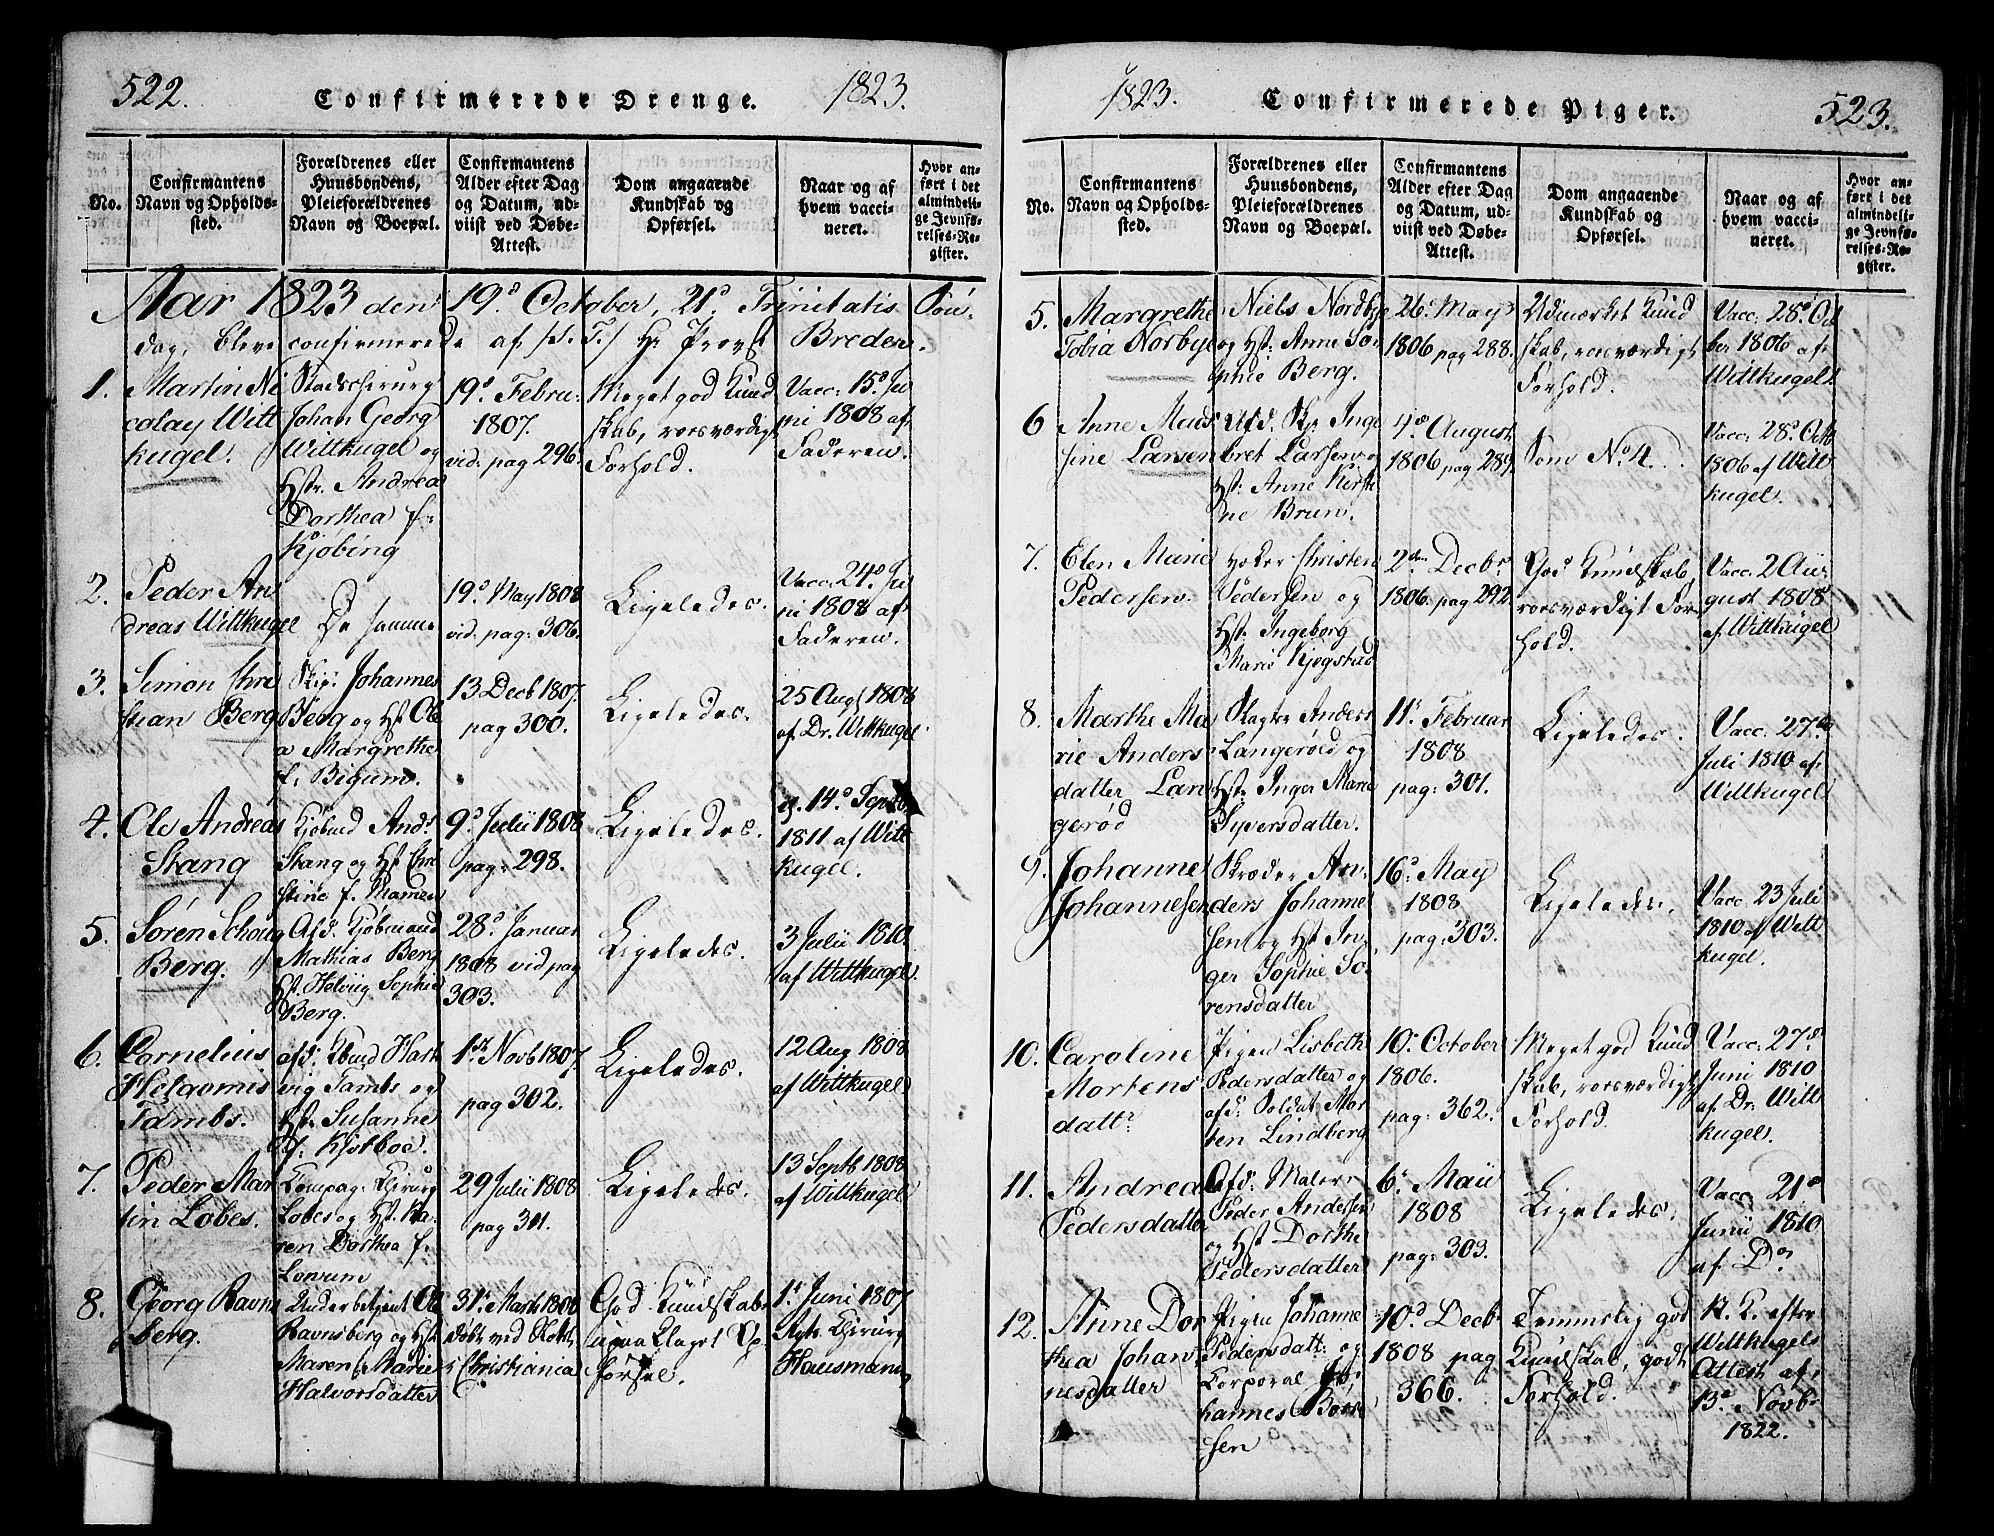 522.
Confirmerede Drenge.
1823.
No.
Confirmantens
Navn og Opholds-
sted.
Forældrenes eller
Huusbondens,
Pleieforældrenes
Navn og Boepæl.
Confirmantens
Alder efter Dag
og Datum, ud-
viist ved Døbe-
Attest.
Dom angaaende
Kundskab og
Opførsel.
Naar og af
hvem vacci-
neret.
Hvor an-
ført i det
almindeli-
ge Jevnfø-
relses-Re-
gister.
Aar 1823 den 19d October, 21d Trinitatis Søn-
dag, bleve confirmerede af /:S. T./ Hr Provst Breder.
1.
Martin Ni
colay Witt
kugel.
Stadschirurg
Johan Georg
Wittkugel og
Hstr. Andrea
Dorthea f.
Kjøbing
19d Febru-
1807.
vid: pag 296.
Meget god Kund
skab, roesværdigt
Forhold.
Vacc: 15d Ju
ni 1808 af
Faderen.
2.
Peder An
dreas Wittkugel
De samme
19d May 1808
vid: pag: 306.
Ligeledes.
Vacc: 24d Ju
ni 1808 af
Faderen.
3.
Simon Chri
stian Berg
Skip: Johannes
Berg og Hst Ole
a Margrethe
f. Bigum.
13 Decb 1807.
pag 300.
Ligeledes.
25 Augt 1808
af Dr. Wittkugel.
4.
Ole Andreas
Stang
Kjøbmd Ands
Stang og Hst Chri
stine f. Mamen
9d Julii 1808
pag: 298.
Ligeledes.
v. 14d Septb
1811 af Witt
kugel.
5.
Søren Schoug
Berg.
Afd. Kjøbmand
Mathias Berg
Hst. Helvig Sophie
Berg.
28d Januar
1808 vid pag
303.
Ligeledes.
3 Julii 1810
af Wittkugel
6.
Cornelius
Tambs.
afd: Kbmd Hart
vig Tambs og
Hst. Susanne
1st Novb 1807.
pag 302.
Ligeledes.
12 Aug 1808
af Wittkugel
7.
Peder Mar
tin Løbes.
Compag: Chirurg
Løbes og Hst. Ka
ren Dorthea f.
Lovum
29 Julii 1808
pag 311.
Ligeledes.
13 Septb 1808
af Wittkugel
8.
Georg Ravns
berg.
Underbetjent Ole
Ravnsberg og Hst
Maren Marie
Halvorsdatter
31d Marts 1808
Christiania
God Kundskab
upaaklaget Op
førsel.
1st Juni 1807
Chirurg
Hausmann
1823.
Confirmerede Piger.
523.
No.
Confirmantens
Navn og Opholds-
sted.
Forældrenes eller
Huusbondens,
Pleieforældrenes
Navn og Boepæl.
Confirmantens
Alder efter Dag
og Datum, ud-
viist ved Døbe-
Attest.
Dom angaaende
Kundskab og
Opførsel.
Naar og af
hvem vacci-
neret.
Hvor an-
ført i det
almindeli-
ge Jevnfø-
relses-Re-
gister.
5.
Margrethe
Tobia Norbye
Niels Nordbye
og Hst: Anne So
phie Berg.
26. May
1806 pag 288.
Udmærket Kund
skab, roesværdigt
Forhold.
Vacc: 28d Oc
ber 1806 af
Wittkugel
6
Anne Mar
sine Larsen
Afd. Sk. Inge
bret Larsen og
Hst: Anne Kirsti
ne Brun.
4d August
1806 pag 289.
Som No 4.
Vacc: 28d Octb
1806 af Witt
kugel.
7.
Elen Marie
Pedersen
Høker Christen
Pedersen og
Hst. Ingeborg
Marie Kjøgstad
2den Decbr
1806. pag 292
God Kundskab,
roesværdigt For
hold.
Vacc: 2 Au
gust 1808
af Wittkugel
8.
Marthe Ma
rie Anders
datter Lan
gerød
Anders
Langerød og
Hst. Inger Marie
Syversdatter.
11. Februar
1808
pag: 301.
Ligeledes.
Vacc: 27de
Juli 1810 af
Wittkugel
9.
Johanne
Johannesen
Skræder An-
ders Johanne
sen og Hst In-
ger Sophie Sø
rensdatter
16d May
1808
pag: 303.
Ligeledes.
Vacc. 23 Juli
1810 af Witt
kugel.
10.
Caroline
Mortens
dattr
Pigen Lisbeth
Pedersdatter og
afd. Soldat Mor
ten Lindberg
10. October
1806.
pag: 362.
Meget god Kund
skab, roesværdigt
Forhold.
Vacc: 27de
Juni 1810
af Dr. Witt
kugel.
11.
Andrea
Pedersdatter
Afd: Maler
Peder Andersen
og Hst Dorthe
Pedersdatter
6. Maii
1808
pag: 303.
Ligeledes.
Vacc: 21de
Junii 1810
af Do
12.
Anne Dor
thea Johan
nesdatter
Pigen Johanne
Pedersdatt: og
Corporal Jo-
hannes Børre
sen
10d Decb
1808 pag
366.
Temmelig god
Kundskab, godt
Forhold.
N. K. efter
Wittkugels
Attest af
13d Novbr
1822.